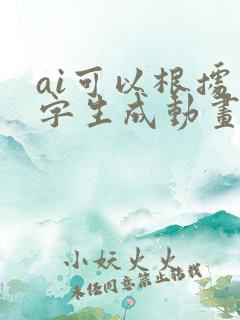 ai可以根据
字生成動畫
小妖火火
未经同意禁止转载